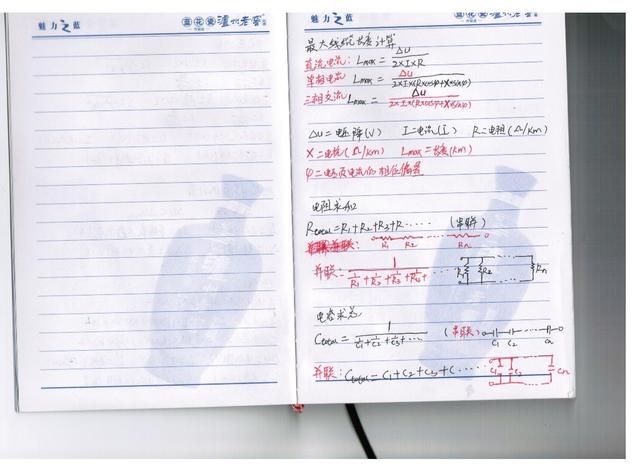 魅力之蓝
蓝花瓷 泸州老窖
魅力之蓝
蓝花瓷 泸州老窖
最大线缆长度计算
直流电流: Lmax = ΔU / 2×I×R
单相电流 Lmax = ΔU / 2×I×(Rxcosφ+Xxsinφ)
三相交流 Lmax = ΔU / 2×I×(Rxcosφ+Xxsinφ)
ΔU=电压降(V) I=电流(I) R=电阻(Ω/km)
X=电抗(Ω/km) Lmax=长度(km)
φ=电压及电流的相位偏差
电阻求和
Rtotal=R1+R2+R3+R····· (串联)
R1 R2 Rn
并联: 1 / 1/R1 + 1/R2 + 1/R3 + R1 R2 Rn
电容求和
Ctotal = 1 / 1/C1+1/C2+1/C3+··· (串联) C1 C2
并联: Ctotal = C1+C2+C3+C····· C1 C2 Cn